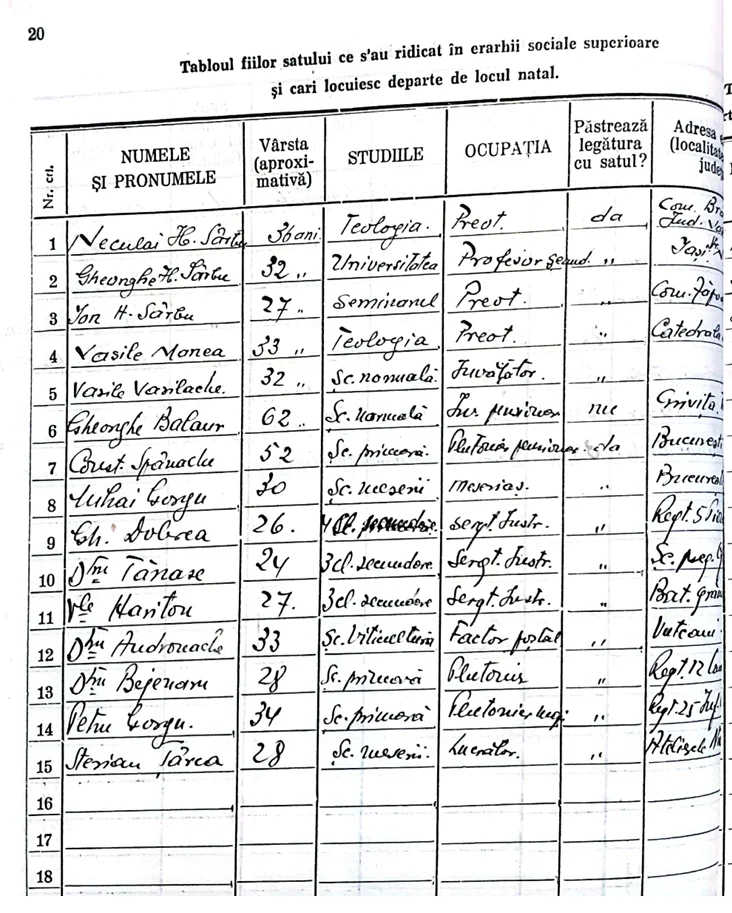 20
Tabloul fiilor satului ce s'au ridicat în erarhii sociale superioare
și cari locuiesc departe de locul natal.
Nr. crt. NUMELE ȘI PRONUMELE Vârsta (aproximativă) STUDIILE OCUPAȚIA Păstrează legătura cu satul? Adresa (localitate jude
1 Neculai H. Sârbu 36 ani Teologia. Preot. da Com. Jud.
2 Gheorghe H. Sârbu 32 " Universitatea Profesor " Iași
3 Ion H. Sârbu 27 " Seminarul Preot. " Com.
4 Vasile Manea 33 " Teologia Preot. " Catedrala
5 Vasile Vasilache. 32 " Șc. normală. Învățător. "
6 Gheorghe Balaur 62 " Șc. normală Înv. pensionar nu Grivița
7 Const. Spânachu 52 Șc. primară. Plutonier pensionar da București
8 Mihai Gorgu 30 Șc. meserii meseriaș. " București
9 Gh. Dobrea 26. 4 cl. secundare sergt. Instr. " Regt. 5
10 Dtru Tănase 24 3 cl. secundare. Sergt. Instr. " Șc.
11 Vle Hariton 27. 3 cl. secundare Sergt. Instr. " Bat.
12 Dtru Andronache 33 Șc. Viticultură Factor poștal " Vutcani
13 Dtru Bejenaru 28 Șc. primară Plutonier " Regt. 12
14 Petru Gorgu. 34 Șc. primară Plutonier maj. " Regt. 25 Inf.
15 Sterian Țârca 28 Șc. meserii. Lucrător. " Atelierele
16
17
18